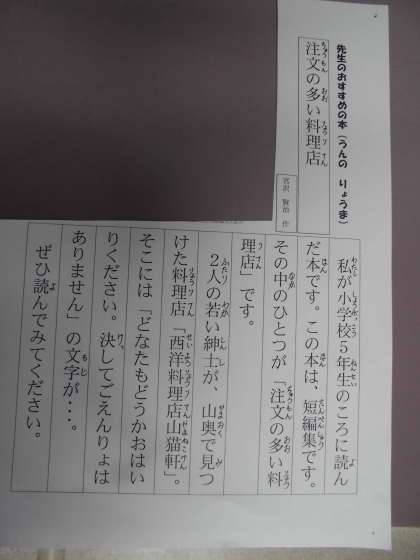 先生のおすすめの本（うんの りょうま）
注文の多い料理店
宮沢 賢治 作
私が小学校５年生のころに読ん
だ本です。この本は、短編集です。
その中のひとつが「注文の多い料
理店」です。
２人の若い紳士が、山奥で見つ
けた料理店「西洋料理店山猫軒」。
そこには「どなたもどうかおはい
りください。決してごえんりょは
ありません」の文字が・・・。
ぜひ読んでみてください。